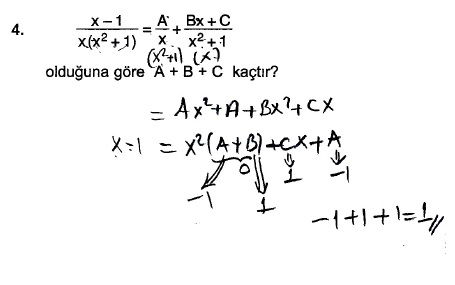 4. x-1/x(x²+1) = A/x + Bx+C/x²+1
(x²+1) (x)
olduğuna göre A + B + C kaçtır?
= Ax²+A+Bx²+Cx
x-1 = x²(A+B)+Cx+A
0 1 -1
-1 1
-1+1+1=1//